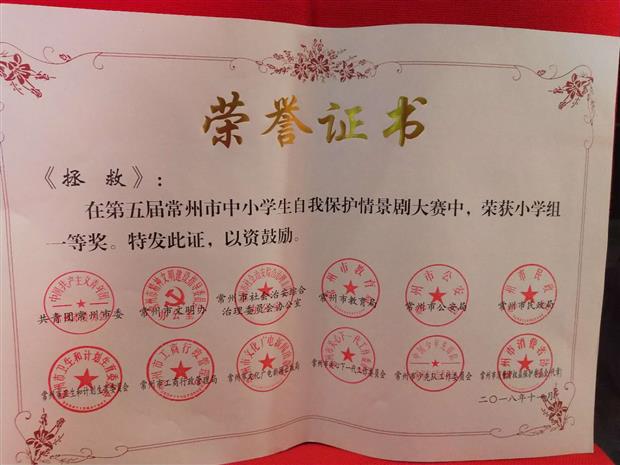 荣誉证书
《拯救》：
在第五届常州市中小学生自我保护情景剧大赛中，荣获小学组
一等奖。特发此证，以资鼓励。
共青团常州市委 常州市文明办 常州市社会治安综合治理委员会办公室 常州市教育局 常州市公安局 常州市民政局
常州市卫生和计划生育委员会 常州市工商行政管理局 常州市文化广电新闻出版局 常州市关心下一代工作委员会 常州市少先队工作委员会
二〇一八年十一月